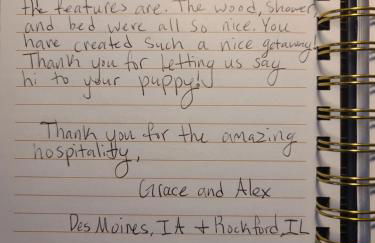 the features are. The wood, shower,
and bed were all so nice. You
have created such a nice getaway!
Thank you for letting us say
hi to your puppy!
Thank you for the amazing
hospitality,
Grace and Alex
Des Moines, IA + Rockford, IL